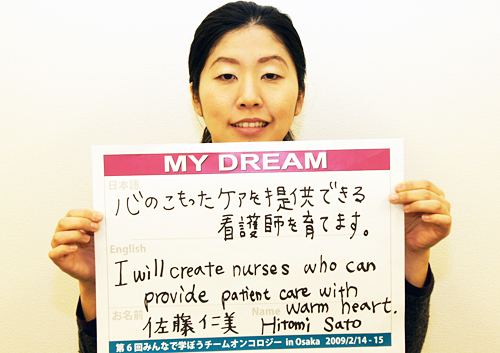 MY DREAM
日本語
心のこもったケアを提供できる
看護師を育てます。
English
I will create nurses who can
provide patient care with
warm heart.
お名前 佐藤仁美 Name Hitomi Sato
第6回みんなで学ぼうチームオンコロジー in Osaka 2009/2/14-15